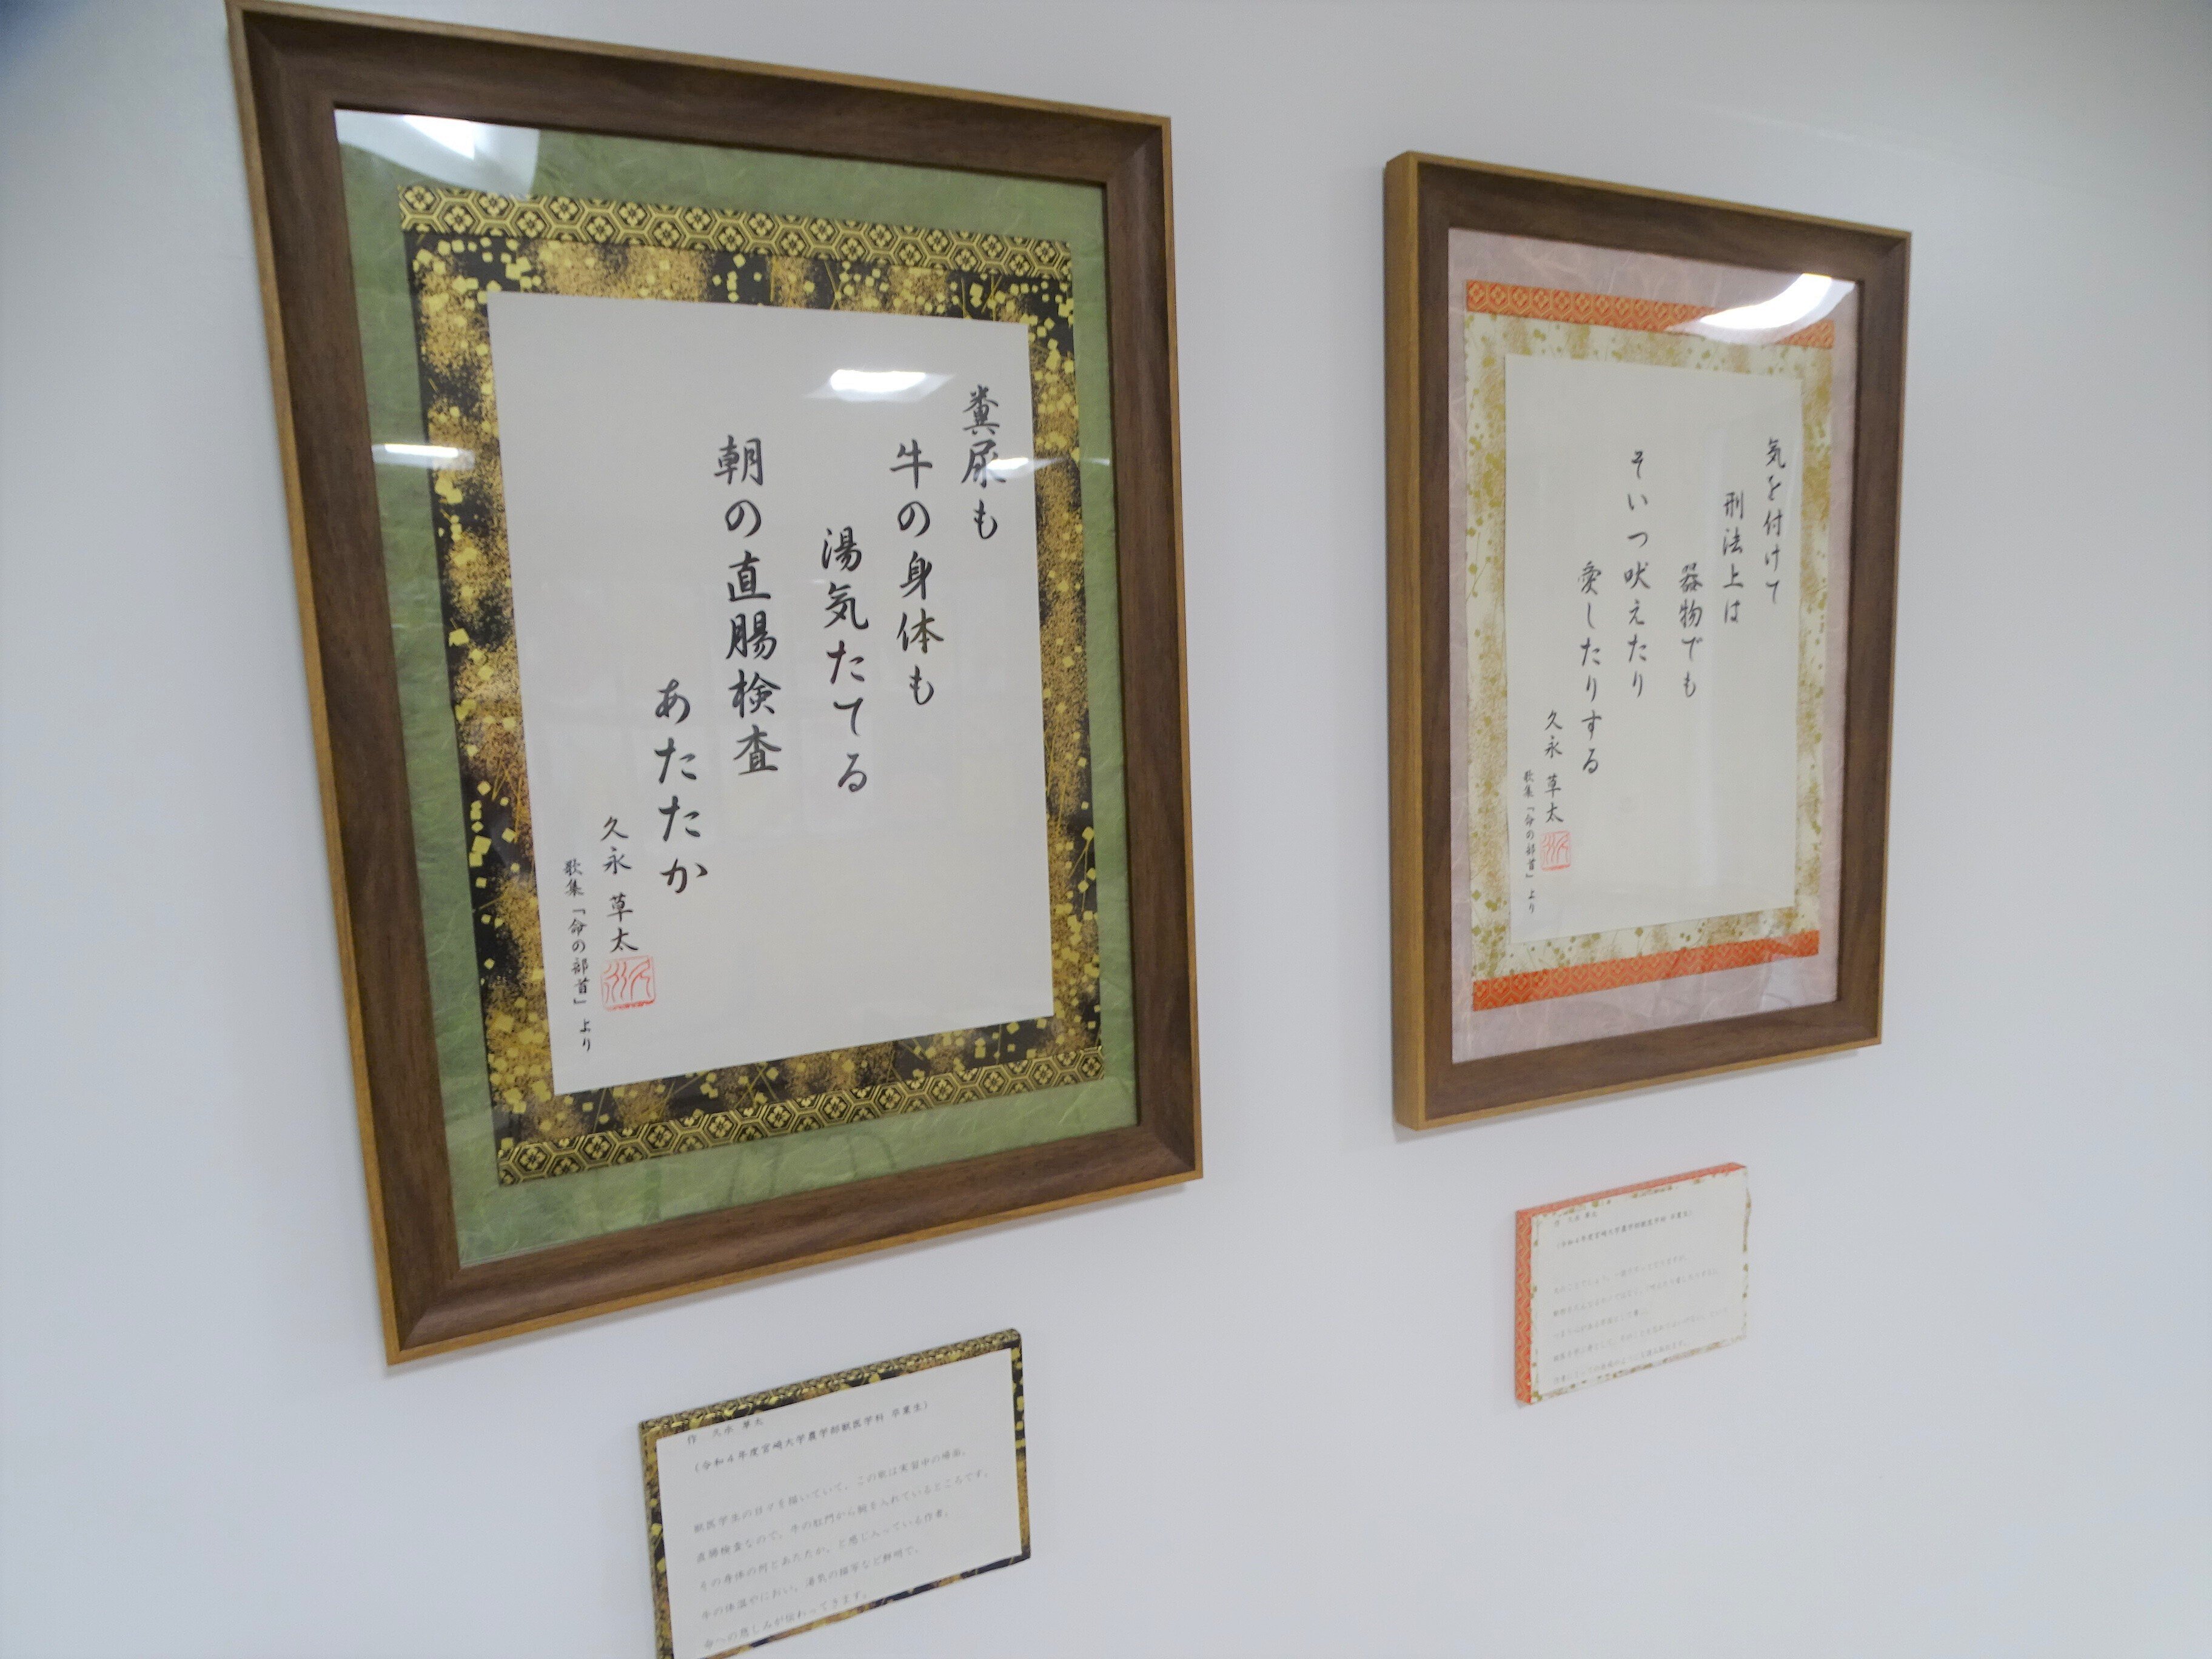 糞尿も
牛の身体も
湯気たてる
朝の直腸検査
あたたか
久永 草太
歌集『命の部首』より
気を付けて
刑法上は
器物でも
そいつ吠えたり
愛したりする
久永 草太
歌集『命の部首』より
作 久永 草太
(令和4年度宮崎大学農学部獣医学科 卒業生)
獣医学生の日々を描いていて、この歌は実習中の場面。
直腸検査なので、牛の肛門から腕を入れているところです。
牛の身体の何とあたたか、と感じ入っている作者。
牛の体温やにおい、湯気の描写など鮮明で、
命への慈しみが伝わってきます。
作 久永 草太
(令和4年度宮崎大学農学部獣医学科 卒業生)